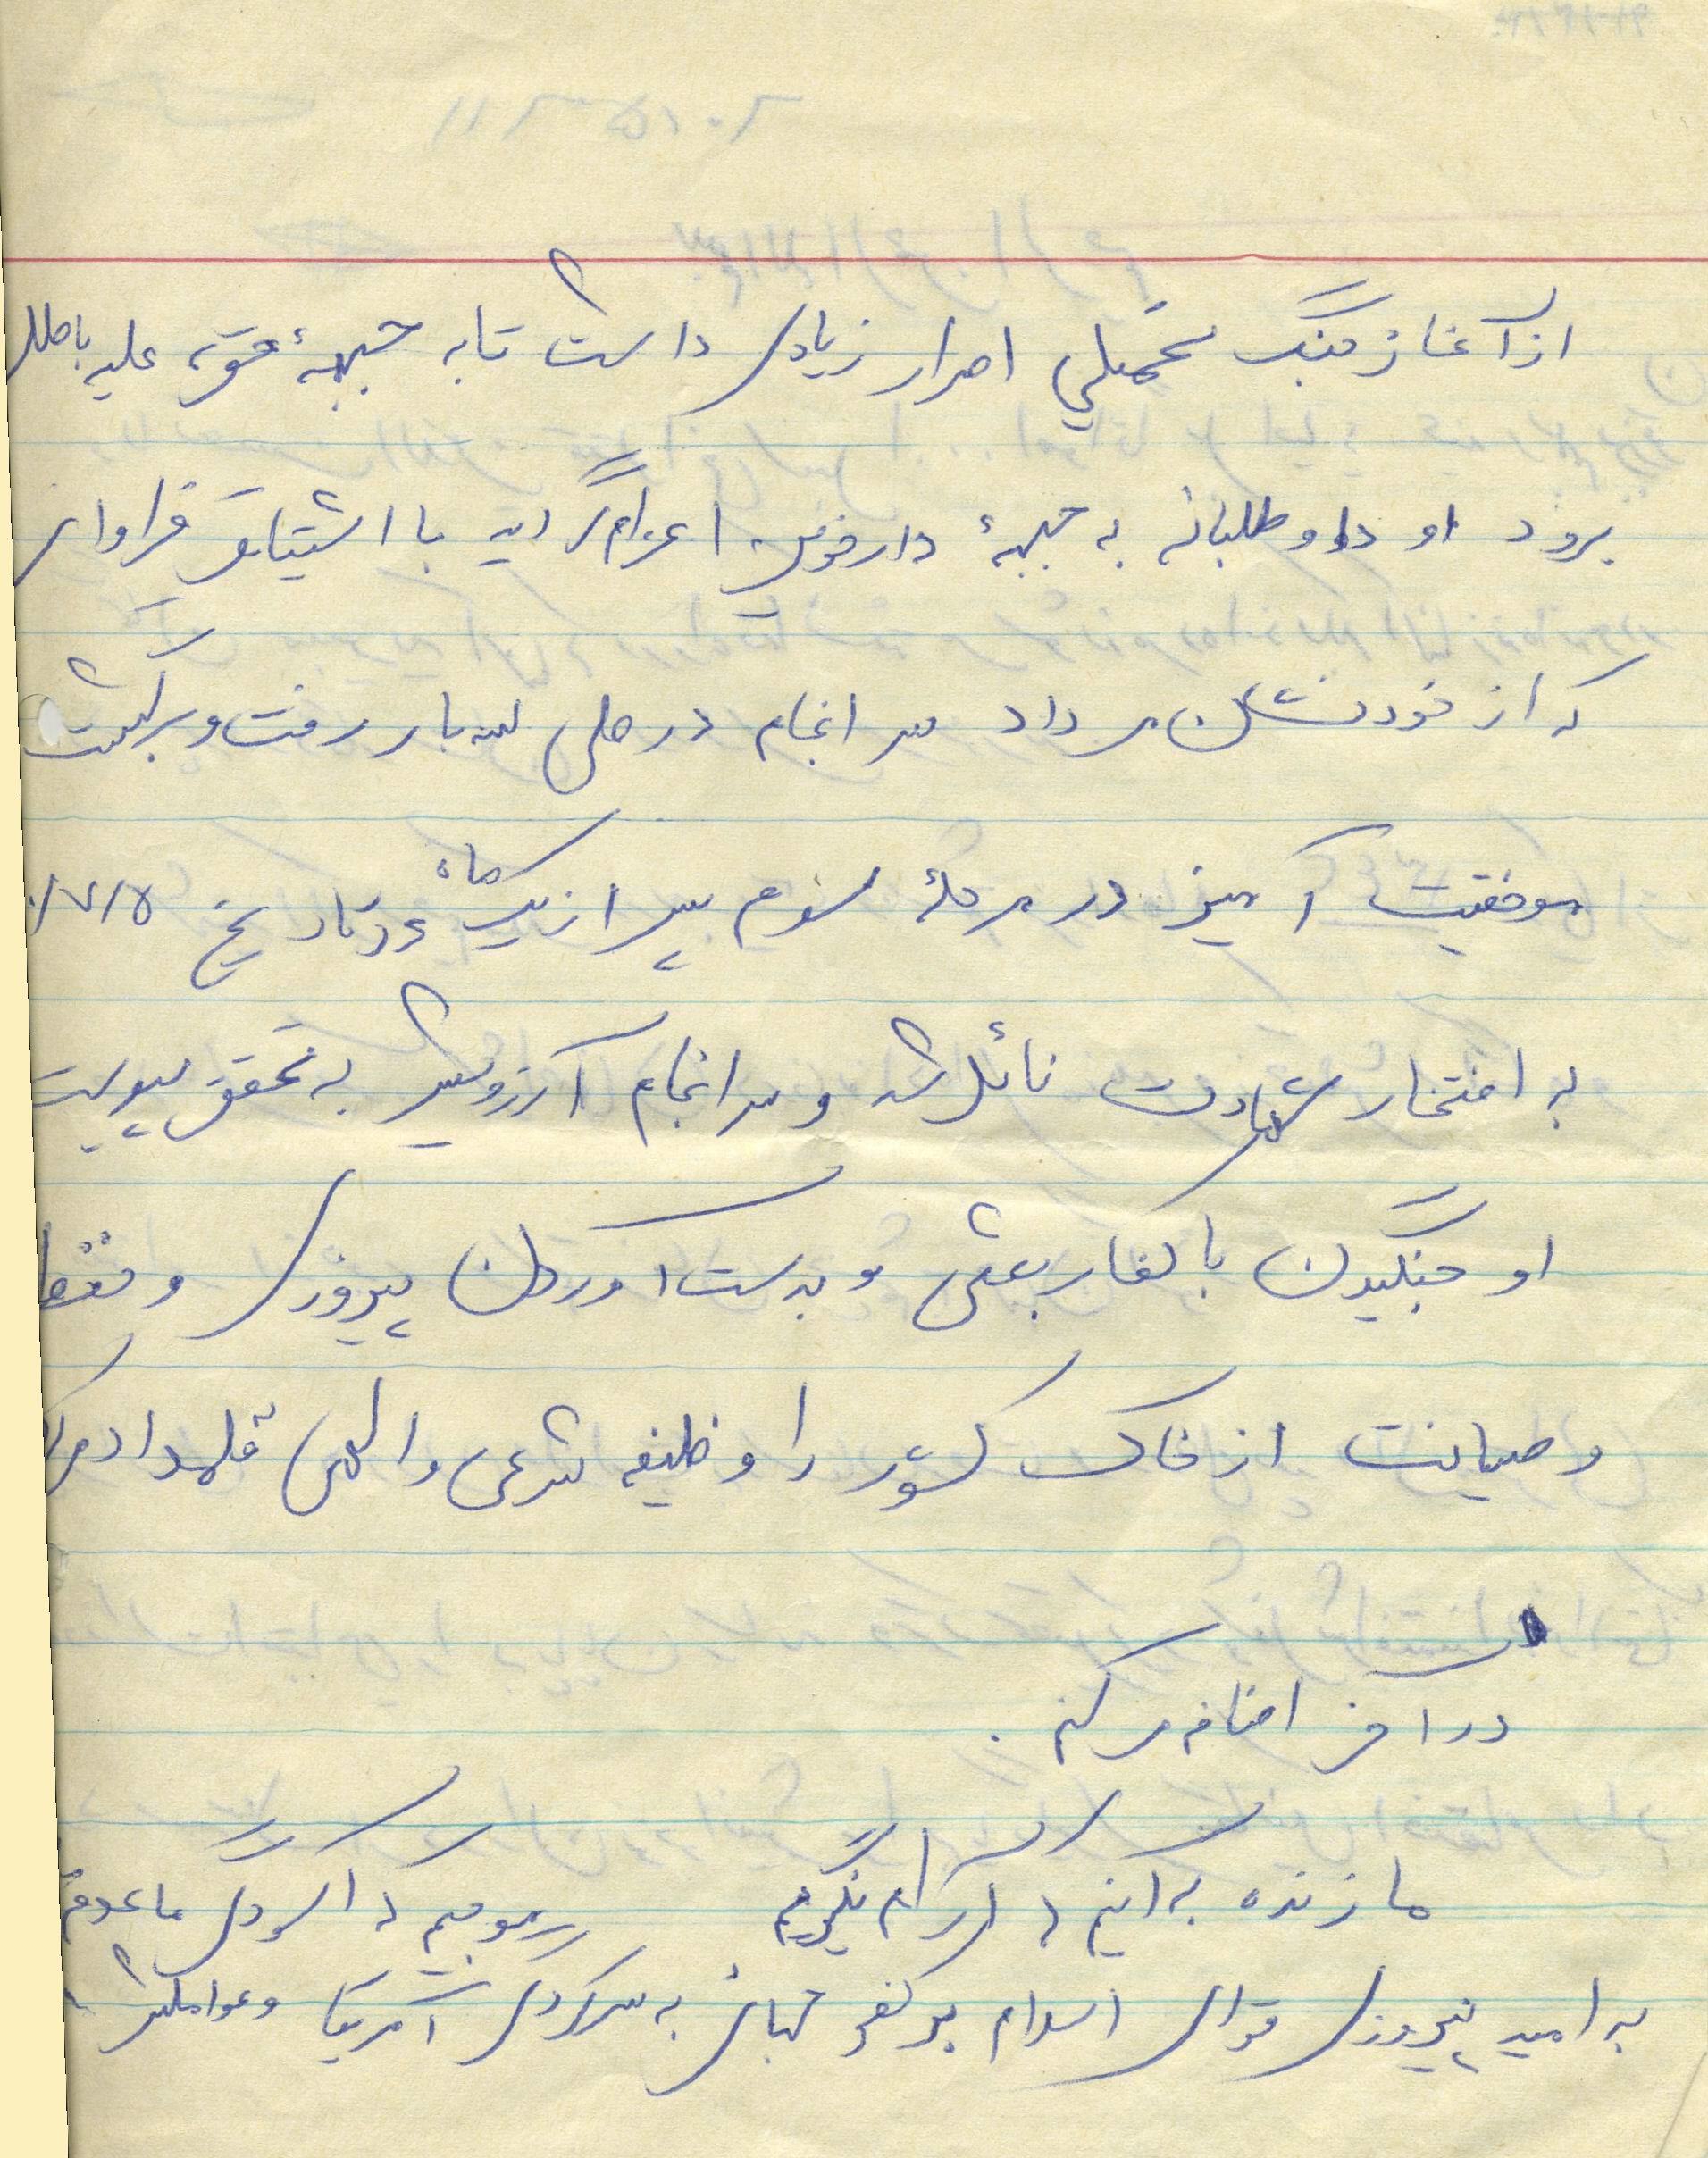 از آغاز جنگ تحمیلی اصرار زیادی داشت تا به جبههٔ حق علیه باطل
برود او داوطلبانه به جبههٔ دارخوین اعزام گردید با اشتیاق فراوانی
که از خود نشان می داد سرانجام در طی سه بار رفت و برگشت
موفقیت آمیز در مرحلهٔ سوم پس از یکماه در تاریخ ۷/۵/
به افتخار شهادت نائل شد و سرانجام آرزویش به تحقق پیوست
او جنگیدن با کفار بعثی و بدست آوردن پیروزی و
و صیانت از خاک کشور را وظیفه شرعی و الهی قلمداد
در آخر اضافه می کنم .
ما زنده به آنیم که آرام نگیریم موجیم که آسودگی ما عدم
به امید پیروزی قوای اسلام بر کفر جهانی به سرکردگی آمریکا و عواملش